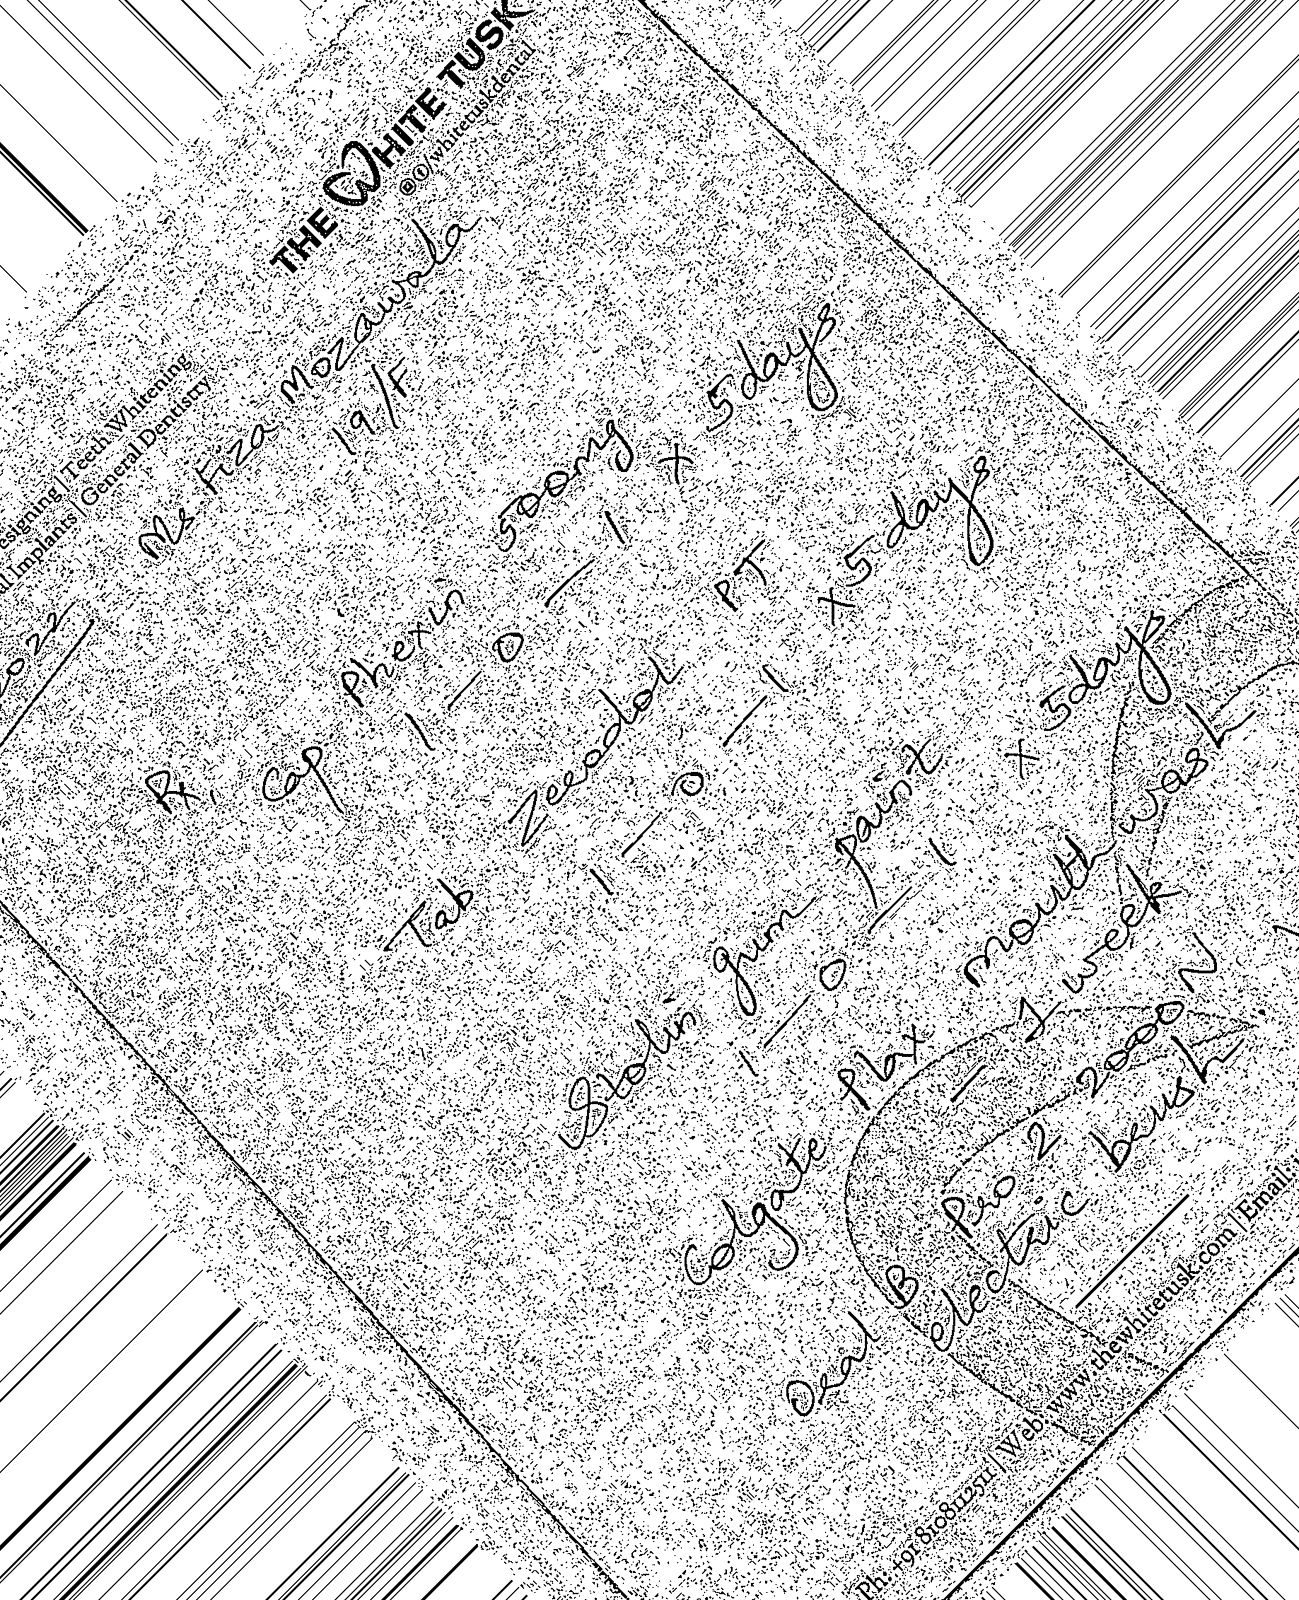 THE WHITE TUSK
@ f/whitetuskdental
Teeth Whitening
Implants | General Dentistry
2022
Ms Fiza Mozawala
19/F
Rx, Cap Phexin 500mg x 5days
1 — 0 — 1
Tab Zeeodol PT x 5days
1 — 0 — 1
Stolin gum paint x 5days
1 — 0 — 1
Colgate Plax mouth wash
— 1 week
Oral B Pro 2 2000 N
electric brush
Ph: +91 8108112511 | Web: www.thewhitetusk.com | Email: